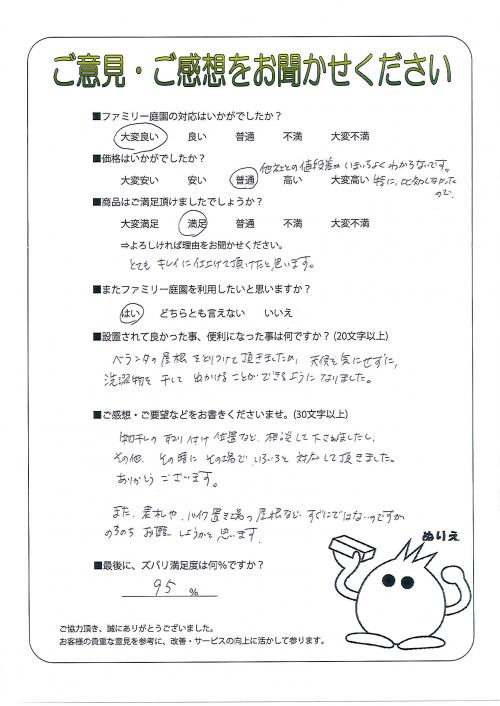 ご意見・ご感想をお聞かせください
■ファミリー庭園の対応はいかがでしたか?
大変良い 良い 普通 不満 大変不満
■価格はいかがでしたか?
他社との値段差がいまいちよくわからないです。
大変安い 安い 普通 高い 大変高い 特に、比較しなかった
ので。
■商品はご満足頂けましたでしょうか?
大変満足 満足 普通 不満 大変不満
⇒よろしければ理由をお聞かせください。
とても キレイに仕上げて頂けたと思います。
■またファミリー庭園を利用したいと思いますか?
はい どちらとも言えない いいえ
■設置されて良かった事、便利になった事は何ですか? (20文字以上)
ベランダの屋根をとりつけて頂きましたため、天候を気にせずに、
洗濯物を干して出かけることができるようになりました。
■ご感想・ご要望などをお書きくださいませ。(30文字以上)
物干しの取り付け位置など、相談して下さいましたし、
その他、その時にその場でいろいろと対応して頂きました。
ありがとうございます。
また、表札や、バイク置き場の屋根など、すぐにではないのですが
のちのちお願いしようかと思います。
ぬりえ
■最後に、ズバリ満足度は何%ですか?
95 %
ご協力頂き、誠にありがとうございました。
お客様の貴重な意見を参考に、改善・サービスの向上に活かして参ります。